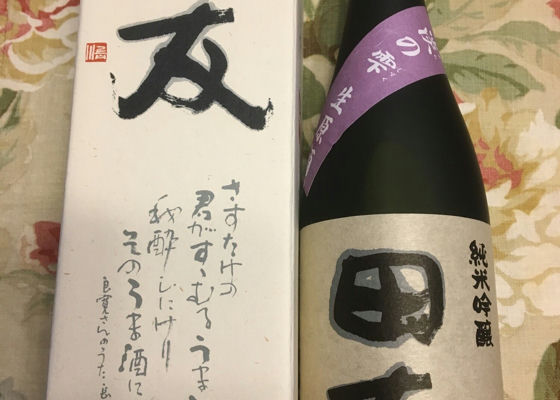 友
さすたけの
君がすゝむるうま
我酔ひにけり
そのうま酒に
良寛さんのうた
の雫
しずく
生原酒
純米吟醸
田